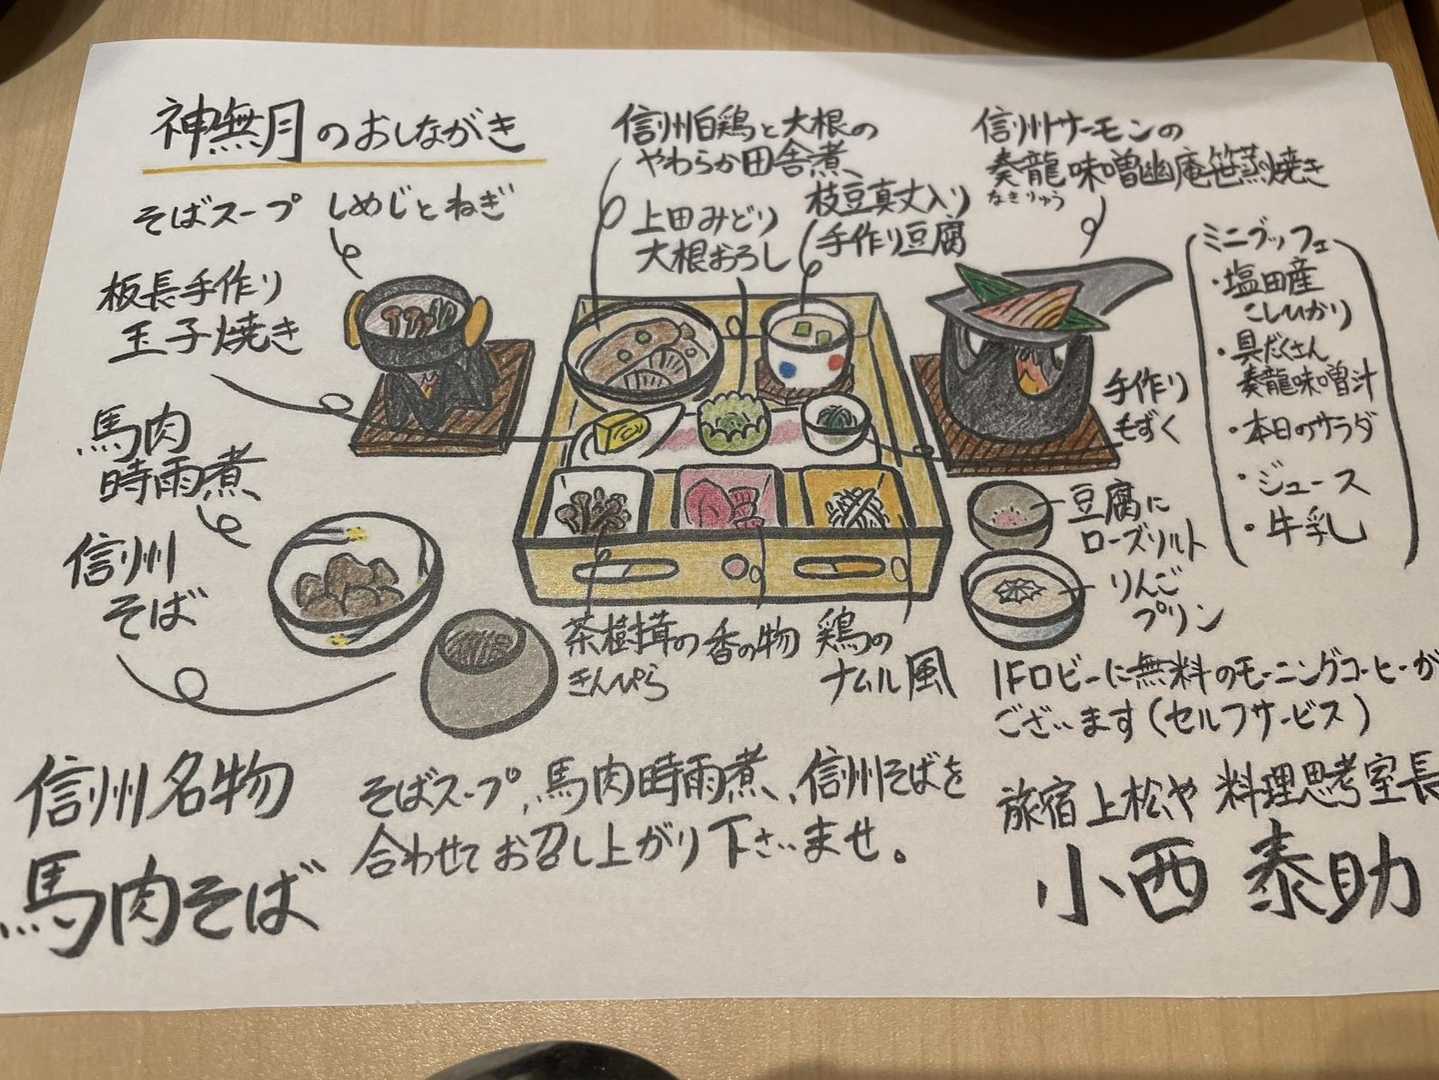 神無月のおしながき
そばスープ しめじとねぎ
板長手作り
玉子焼き
馬肉
時雨煮
信州
そば
信州白鶏と大根の
やわらか田舎煮
上田みどり
大根おろし
枝豆真丈入り
手作り豆腐
信州サーモンの
奏龍味噌幽庵笹蒸焼き
なきりゅう
手作り
もずく
ミニブッフェ
・塩田産
こしひかり
・具だくさん
奏龍味噌汁
・本日のサラダ
・ジュース
・牛乳
豆腐に
ローズソルト
りんご
プリン
茶樹茸の
きんぴら
香の物
鶏の
ナムル風
1Fロビーに無料のモーニングコーヒーが
ございます(セルフサービス)
信州名物
馬肉そば
そばスープ、馬肉時雨煮、信州そばを
合わせてお召し上がり下さいませ。
旅宿上松や 料理思考室長
小西 泰助